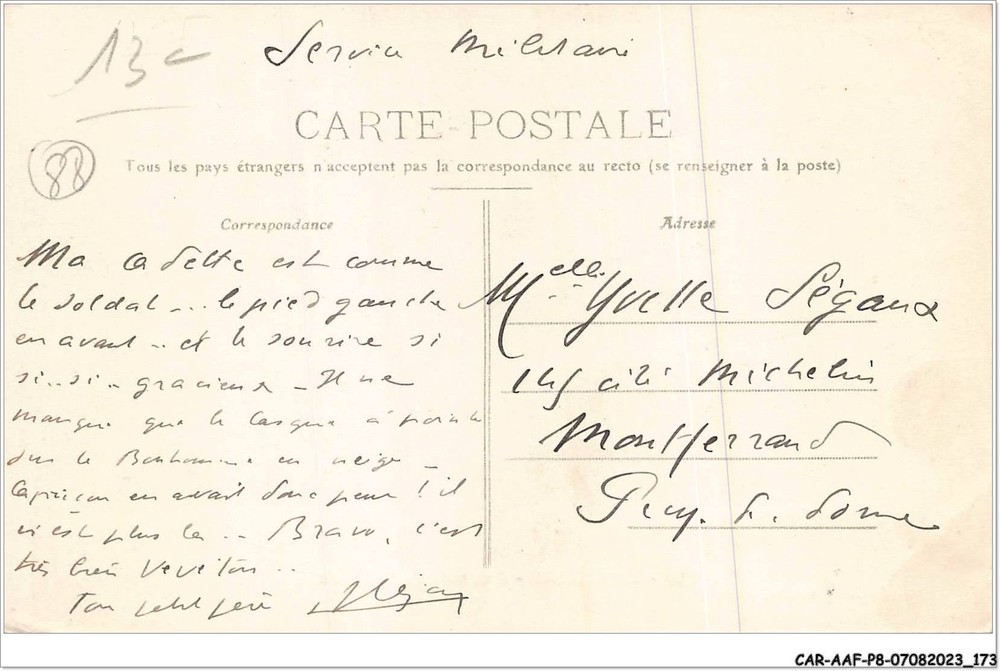 13 c
Service Militaire
CARTE POSTALE
88
Tous les pays étrangers n'acceptent pas la correspondance au recto (se renseigner à la poste)
Correspondance
Ma cadette est comme
le soldat ... le pied gauche
en avant .. et le sourire si
si .. si .. gracieux - Il ne
manque que le casque à pointe
sur le Bonhomme en neige -
en avait donc peur ! il
n'est plus là .. Bravo, c'est
très bien Veveton ..
Ton petit père
Adresse
Melle Yvette Ségaux
cité Michelin
Montferrand
Puy. d. dome
CAR-AAF-P8-07082023_173